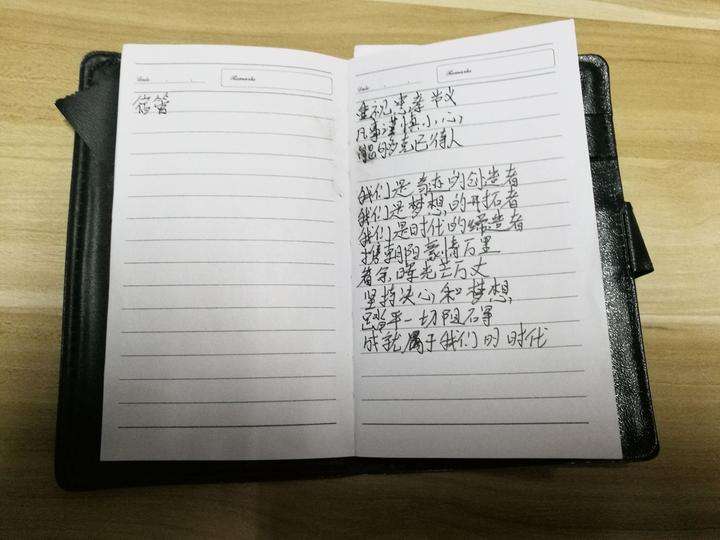 Date
Remarks
信管
Date
Remarks
重视忠孝节义
凡事谨慎小心
克己待人
我们是奇迹的创造者
我们是梦想的开拓者
我们是时代的缔造者
携朝阳豪情万里
着余晖光芒万丈
坚持决心和梦想
踏平一切阻碍
成就属于我们的时代